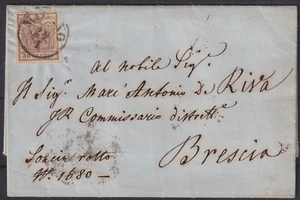 Al nobile Sigr.
Il Sigr. Marc Antonio de Riva
IR Commissario distrett.
Brescia
Soncin rotto
No. 1680 —